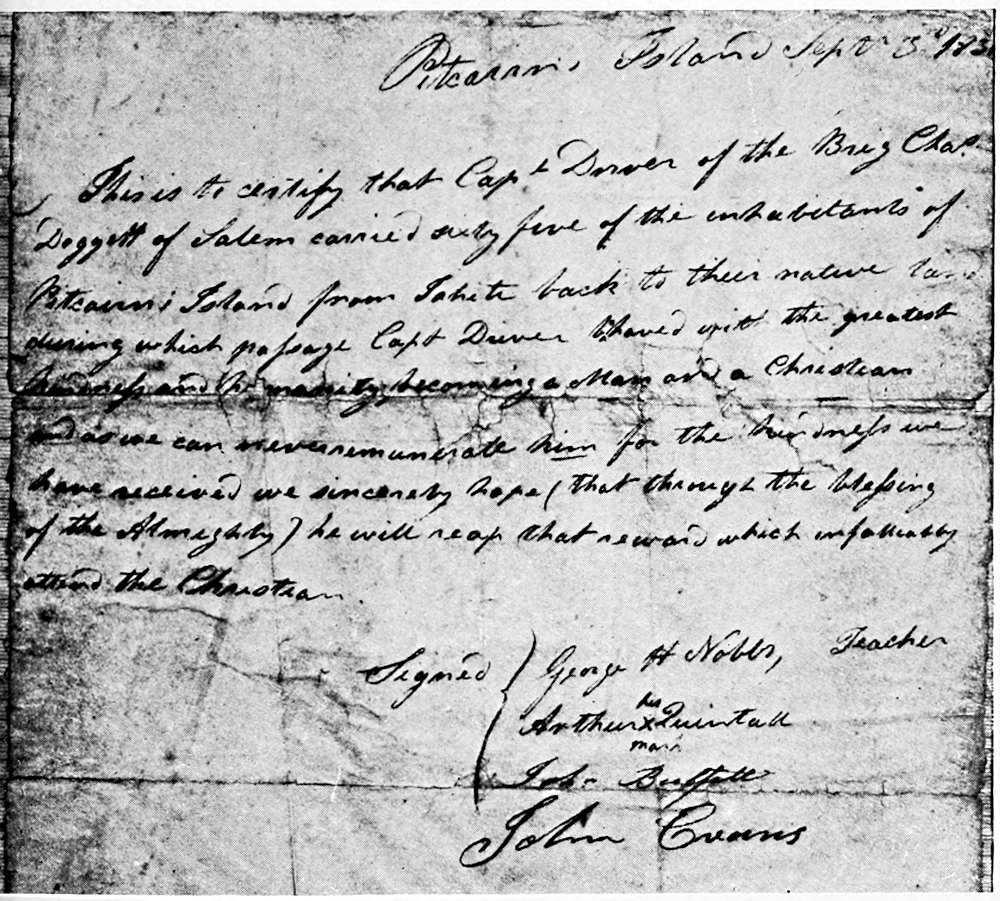 Pitcairns Island Sept 3d 183
This is to certify that Capt Driver of the Brig Chas.
Doggett of Salem carried sixty five of the inhabitants of
Pitcairns Island from Tahiti back to their native land
during which passage Capt Driver behaved with the greatest
kindness and humanity becoming a Man and a Christian
and as we can never remunerate him for the kindness we
have received we sincerely hope (that through the blessing
of the Almighty) he will reap that reward which infallibly
attend the Christian.
Signed George H Nobbs, Teacher
his
Arthur x Quintall
mark
John Buffett
John Evans